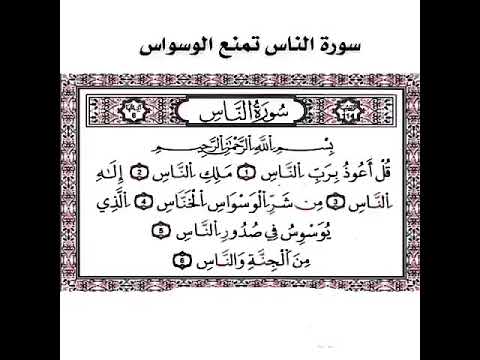 سورة الناس تمنع الوسواس
سُورَةُ النَّاسِ
بِسْمِ اللَّهِ الرَّحْمَٰنِ الرَّحِيمِ
قُلْ أَعُوذُ بِرَبِّ النَّاسِ ١ مَلِكِ النَّاسِ ٢ إِلَٰهِ
النَّاسِ ٣ مِن شَرِّ الْوَسْوَاسِ الْخَنَّاسِ ٤ الَّذِي
يُوَسْوِسُ فِي صُدُورِ النَّاسِ ٥
مِنَ الْجِنَّةِ وَالنَّاسِ ٦